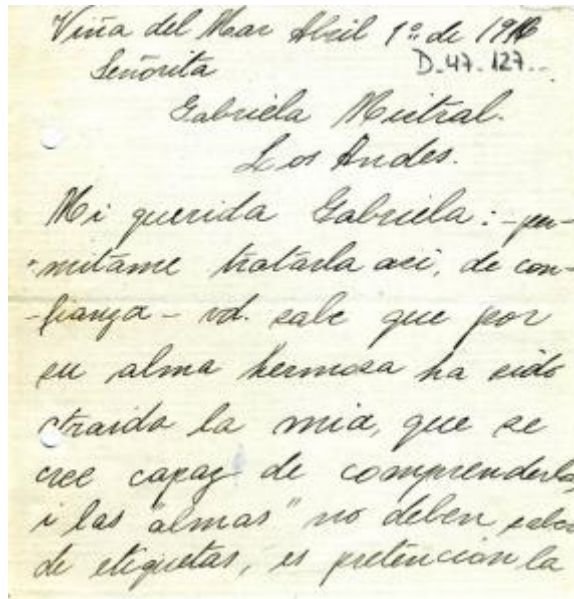 Viña del Mar Abril 1º de 1916
Señorita
D-47-127-
Gabriela Mistral.
Los Andes.
Mi querida Gabriela: -per-
-mitame tratarla asi, de con-
-fianza - vd. sabe que por
su alma hermosa ha sido
atraida la mia, que se
cree capaz de comprenderla,
i las "almas" no deben saber
de etiquetas, es pretencion la